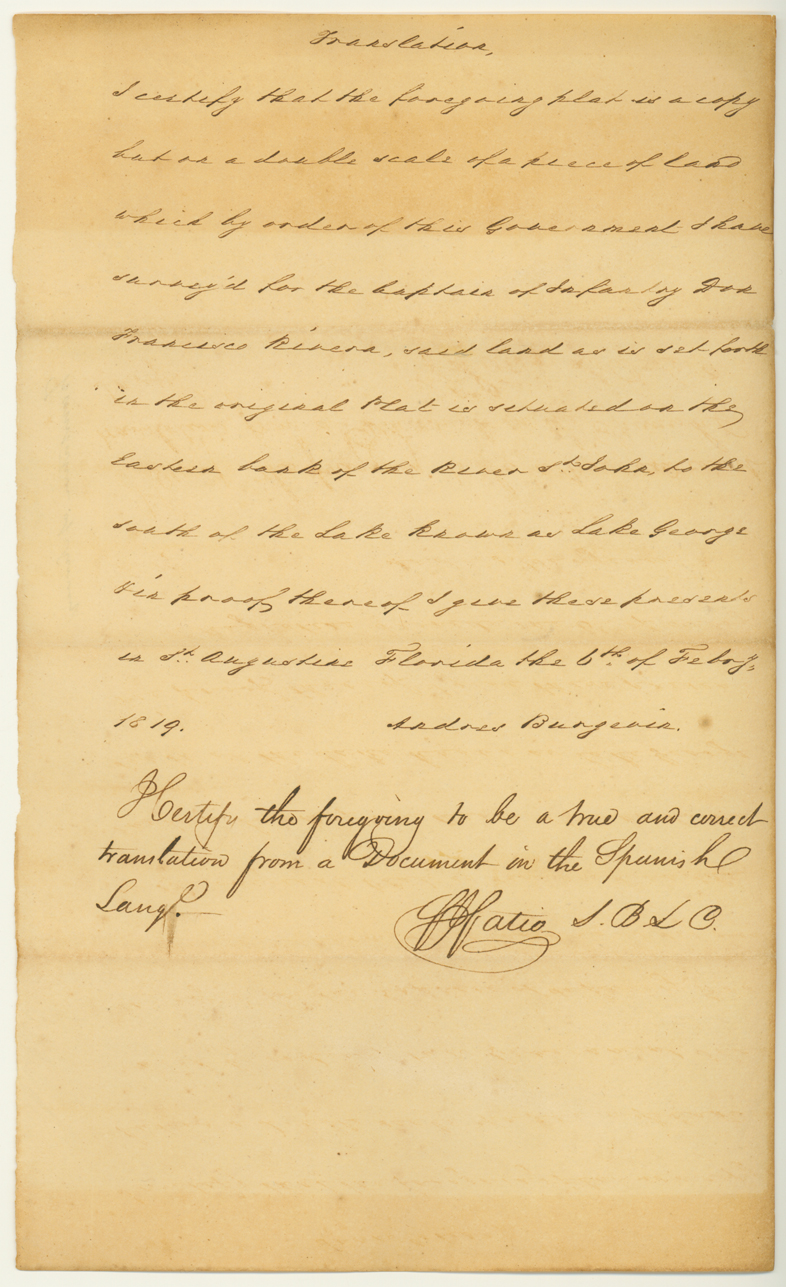 Translation,
I certify that the foregoing plat is a copy
but on a double scale of a piece of land
which by order of this Government I have
survey'd for the Captain of Infantry Don
Francisco Rivera, said land as is set forth
in the original Plat is situated on the
Eastern bank of the River St. John, to the
south of the Lake known as Lake George
& in proof thereof I give these presents
in St. Augustine Florida the 6th. of Feby.
1819. Andres Burgevin.
I Certify the foregoing to be a true and correct
translation from a Document in the Spanish
Lang.
Fatio S. B L C.